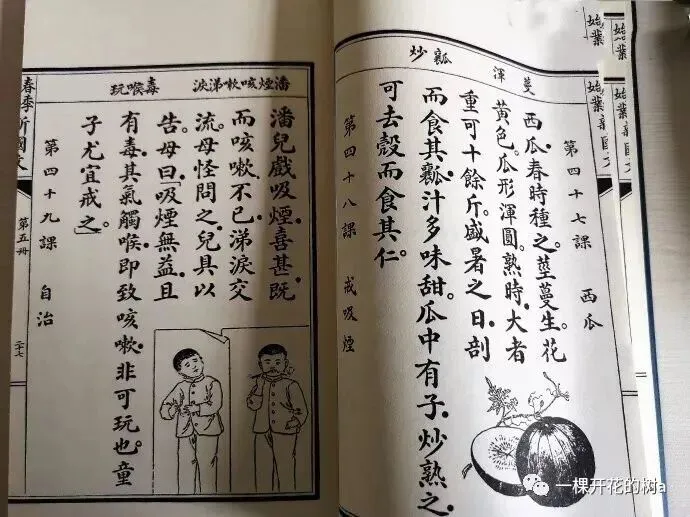 始業
始業
始業新國文
始業新國文
蔓 渾
瓤 炒
第四十七課 西瓜
西瓜。春時種之。莖蔓生。花
黃色。瓜形渾圓。熟時。大者
重可十餘斤。盛暑之日。剖
而食其瓤。汁多味甜。瓜中有子。炒熟之。
可去殼而食其仁。
第四十八課 戒吸煙
潘煙咳嗽涕淚 毒喉玩
潘兒戲吸煙。喜甚。既
而咳嗽不已。涕淚交
流。母怪問之。兒具以
告。母曰「吸煙無益。且
有毒。其氣觸喉。即致咳嗽。非可玩也。童
子尤宜戒之。」
第四十九課 自治
春季新國文
第五册
二十七
一棵开花的树a